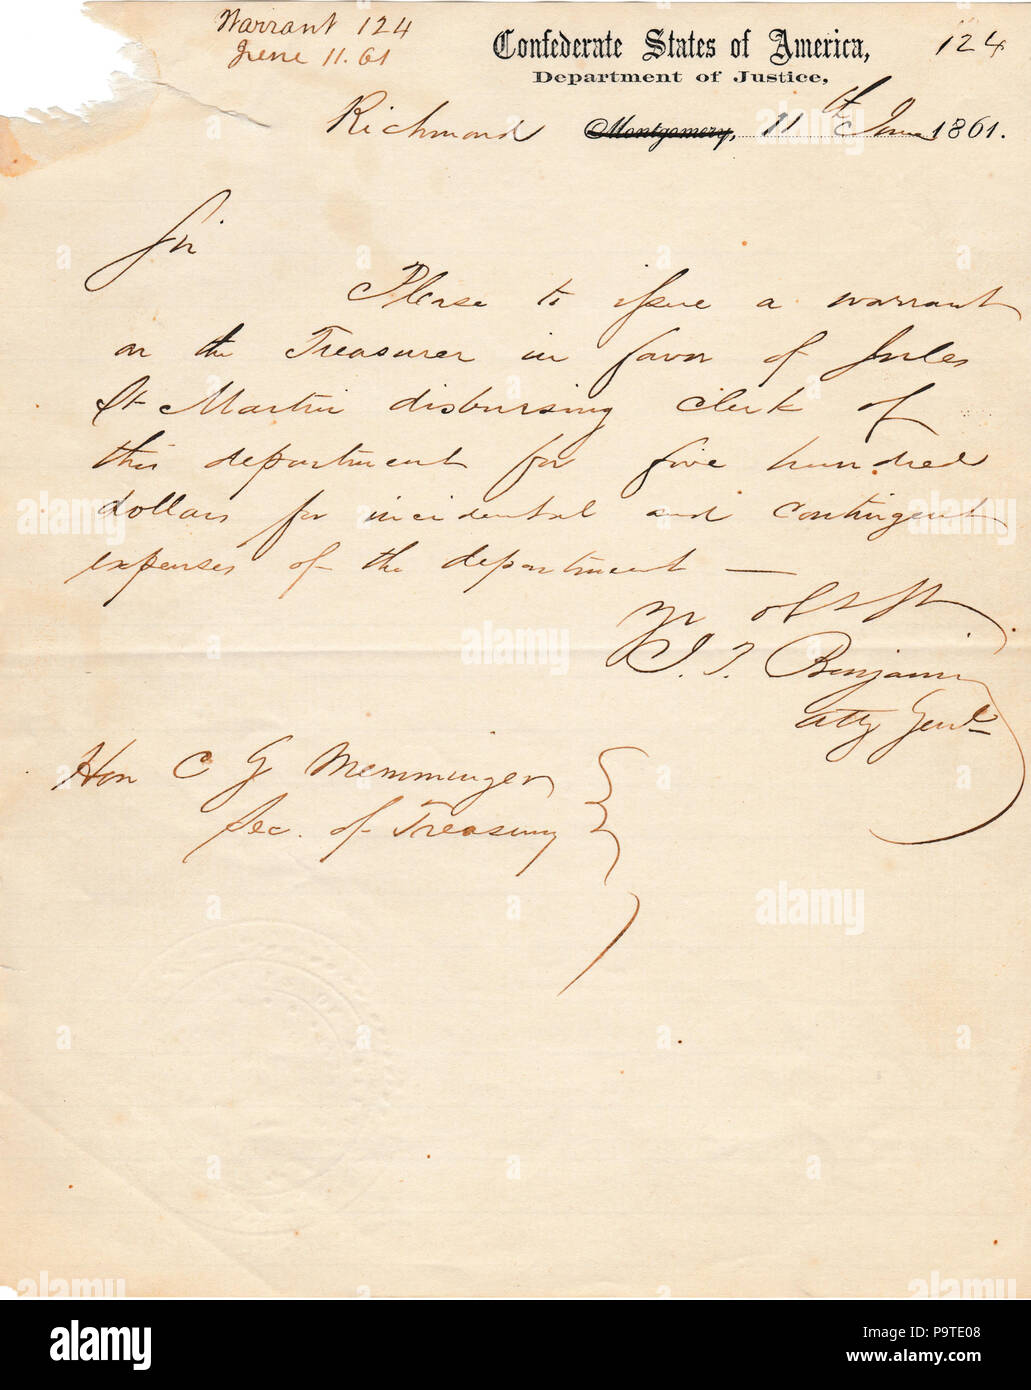 Warrant 124
June 11. 61
Confederate States of America,
124
Department of Justice,
Richmond Montgomery, 11th June 1861.
Sir
Please to issue a warrant
on the Treasurer in favor of Jules
St Martin disbursing clerk of
this department for five hundred
dollars for incidental and contingent
expenses of the department —
Yr obt st
J. P. Benjamin
Atty Genl
Hon C G Memminger
Sec. of Treasury
alamy
Image ID: P9TE08
www.alamy.com